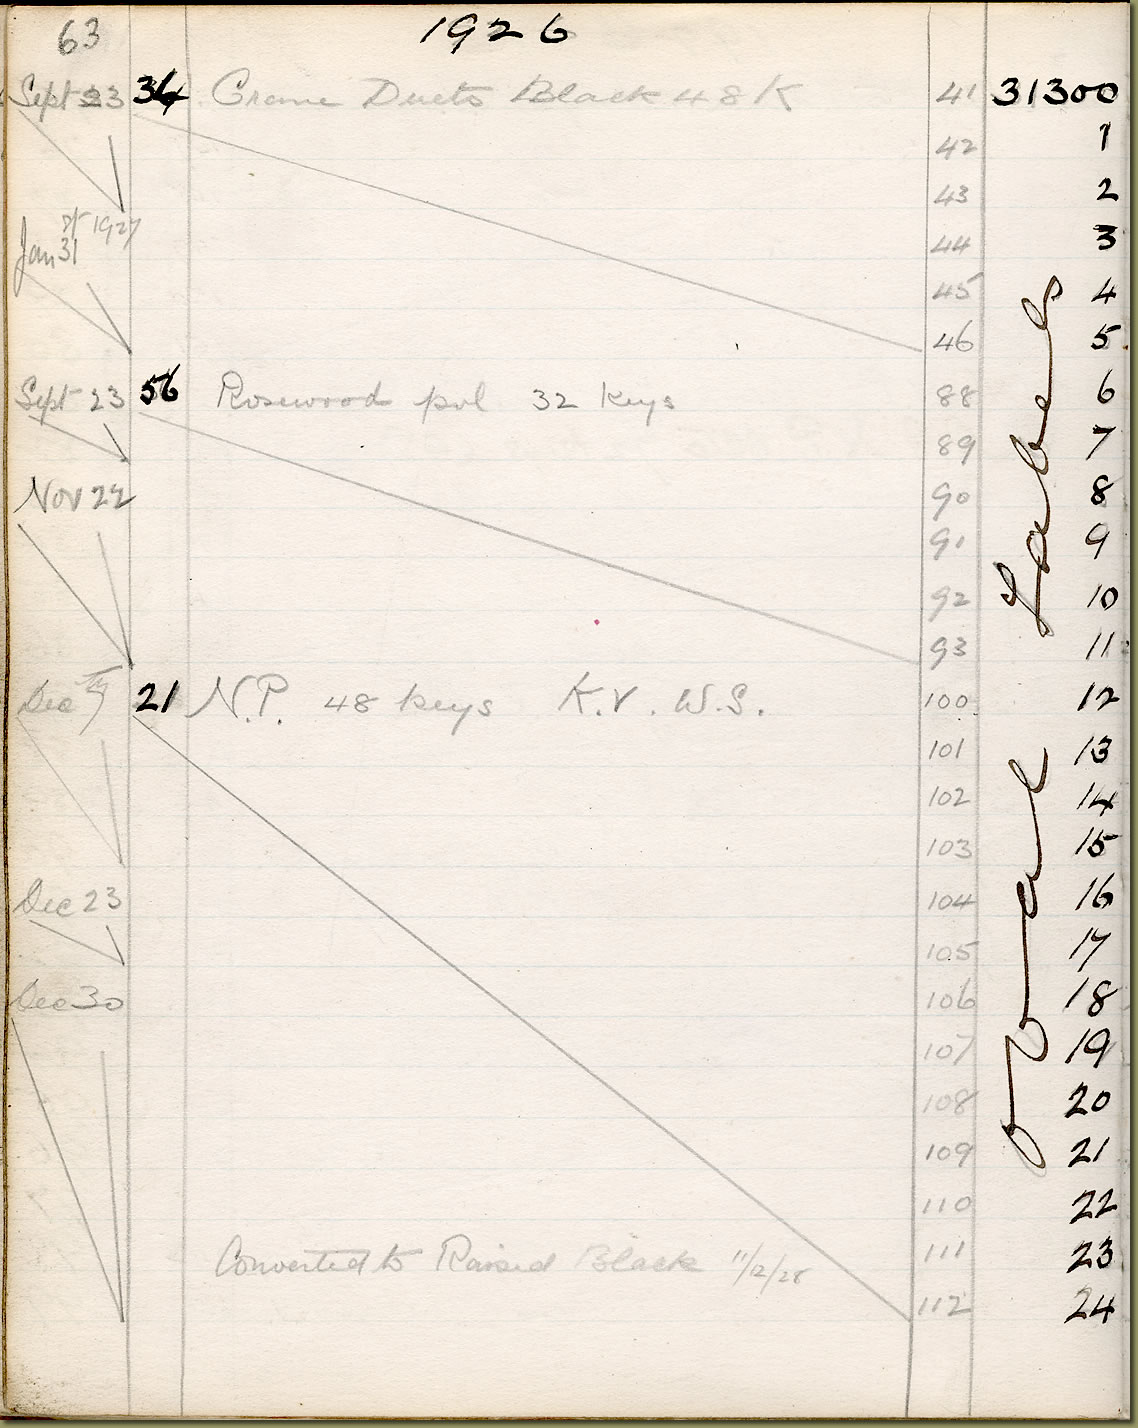 63 1926
Sept 23 34 Crane Duets Black 48 K 41 31300
42 1
43 2
Jan 31st 1927 44 3
45 4
46 5
Sept 23 56 Rosewood pol 32 keys 88 6
89 7
Nov 22 90 8
91 9
92 10
93 11
Dec 7th 21 N.P. 48 keys K.V. W.S. 100 12
101 13
102 14
103 15
Dec 23 104 16
105 17
Dec 30 106 18
107 19
108 20
109 21
110 22
Converted to Raised Black 11/2/28 111 23
112 24
Oval Labels